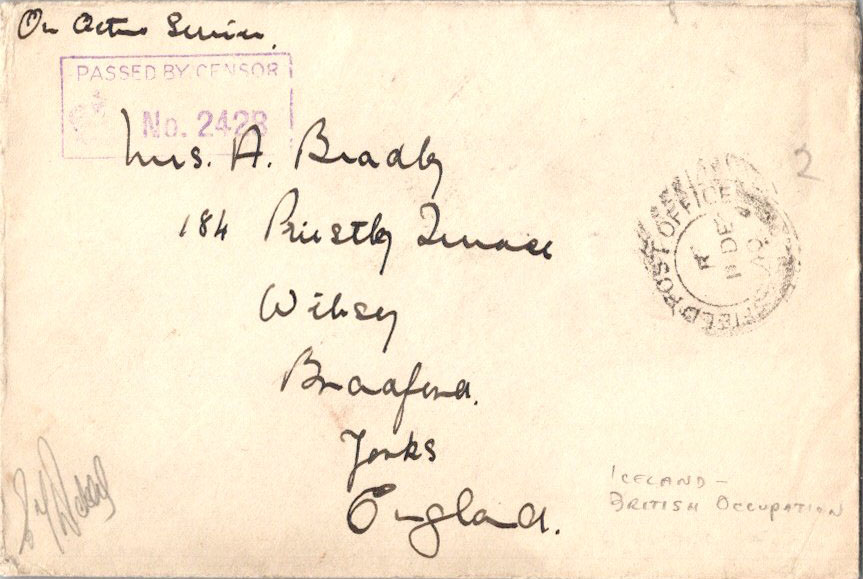 On Active Service.
PASSED BY CENSOR
No. 2428
Mrs. A. Bradley
184 Priestley Terrace
Wibsey
Bradford.
Yorks
England.
FIELD POST OFFICE
DE
2
ICELAND –
BRITISH OCCUPATION